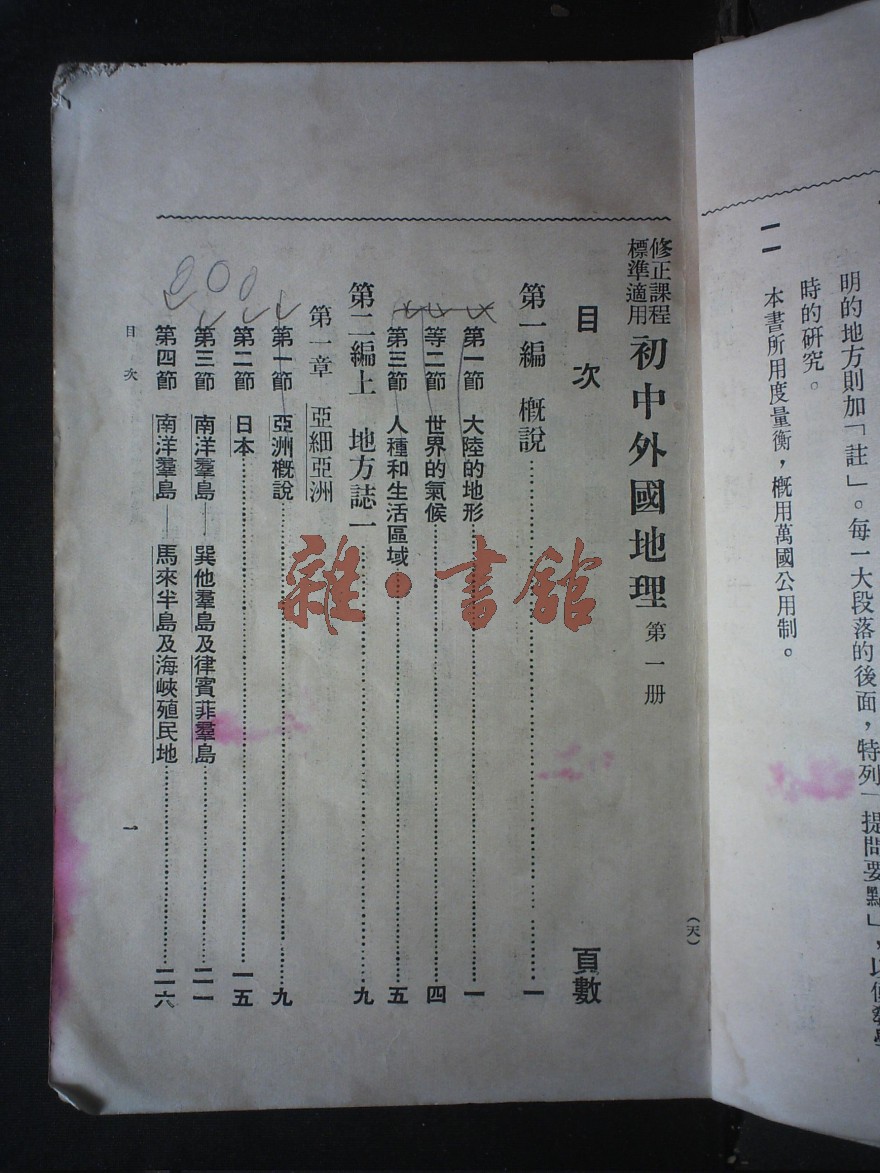 明的地方則加「註」。每一大段落的後面，特列「提問要點」，以便
時的研究。
一一　本書所用度量衡，概用萬國公用制。
（天）
修正課程標準適用 初中外國地理 第一册
目次 頁數
第一編　概說……一
第一節　大陸的地形……一
等二節　世界的氣候……四
第三節　人種和生活區域……五
第二編上　地方誌一……九
第一章　亞細亞洲
第一節　亞洲概說……九
第二節　日本……一五
第三節　南洋羣島——巽他羣島及律賓菲羣島……二一
第四節　南洋羣島——馬來半島及海峽殖民地……二六
目次 一
雜·書館